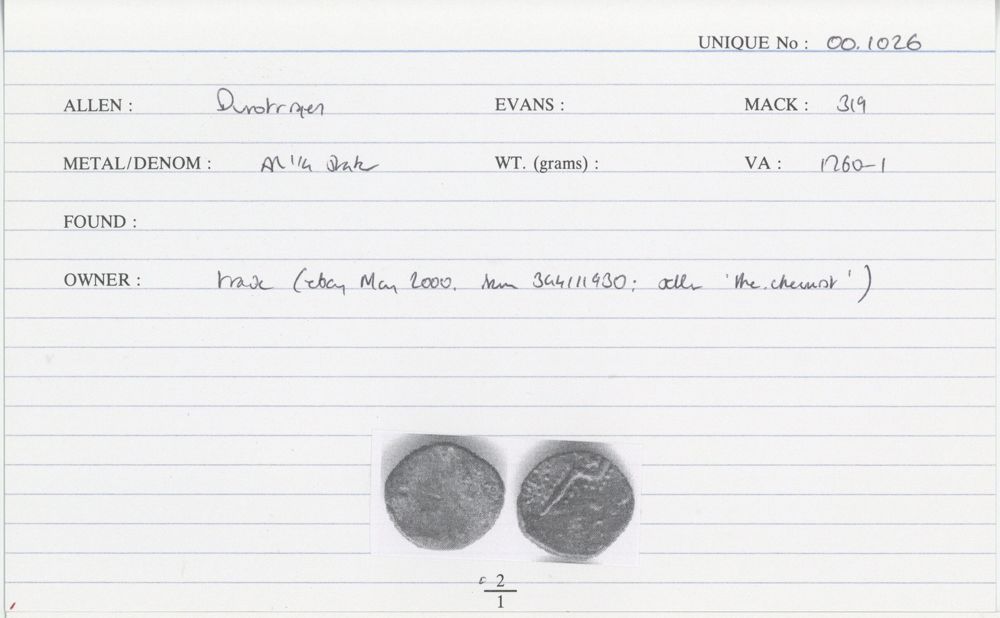 UNIQUE No : 00.1026
ALLEN : Durotriges EVANS : MACK : 319
METAL/DENOM : AR 1/4 Stater WT. (grams) : VA : 1260-1
FOUND :
OWNER : trade (ebay May 2000. item 344111930; seller 'the.chemist')
c 2
1